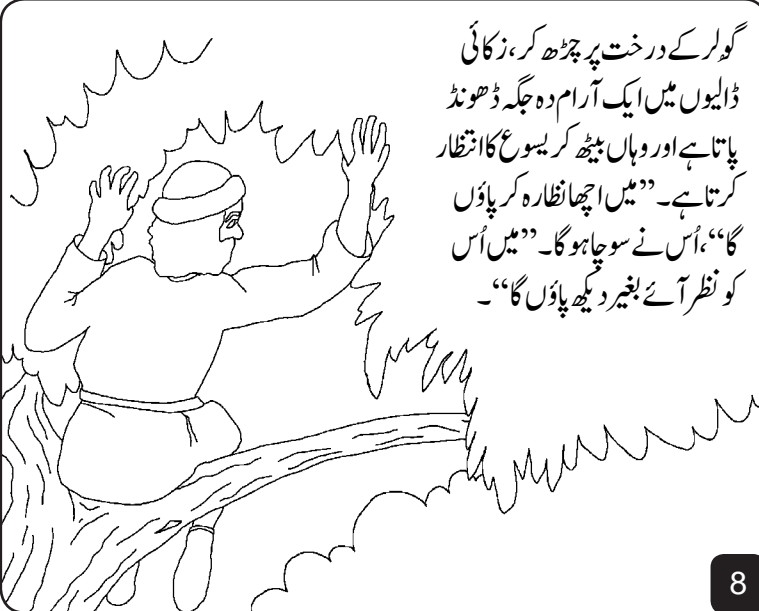 گوُلر کے درخت پر چڑھ کر، زکائی
ڈالیوں میں ایک آرام دہ جگہ ڈھونڈ
پاتا ہے اور وہاں بیٹھ کر یسوع کا انتظار
کرتا ہے۔ ”میں اچھا نظارہ کر پاؤں
گا“، اُس نے سوچا ہو گا۔ ”میں اُس
کو نظر آئے بغیر دیکھ پاؤں گا“۔
8